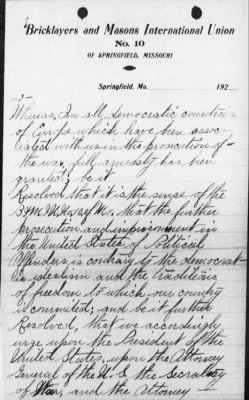 Bricklayers and Masons International Union
No. 10
OF SPRINGFIELD, MISSOURI
Springfield, Mo. 192
-2-
Whereas, In all democratic countries
of Europe which have been asso-
ciated with us in the prosecution of
the war, full amnesty has been
granted; be it
Resolved that it is the sense of the
that the further
prosecution and imprisonment in
the United States of Political
Offenders is contrary to the democrat-
ic idealism and the traditions
of freedom to which our country
is committed; and be it further
Resolved, that we accordingly
urge upon the President of the
United States, upon the Attorney
General of the U.S, the Secretary
of War, and the Attorney